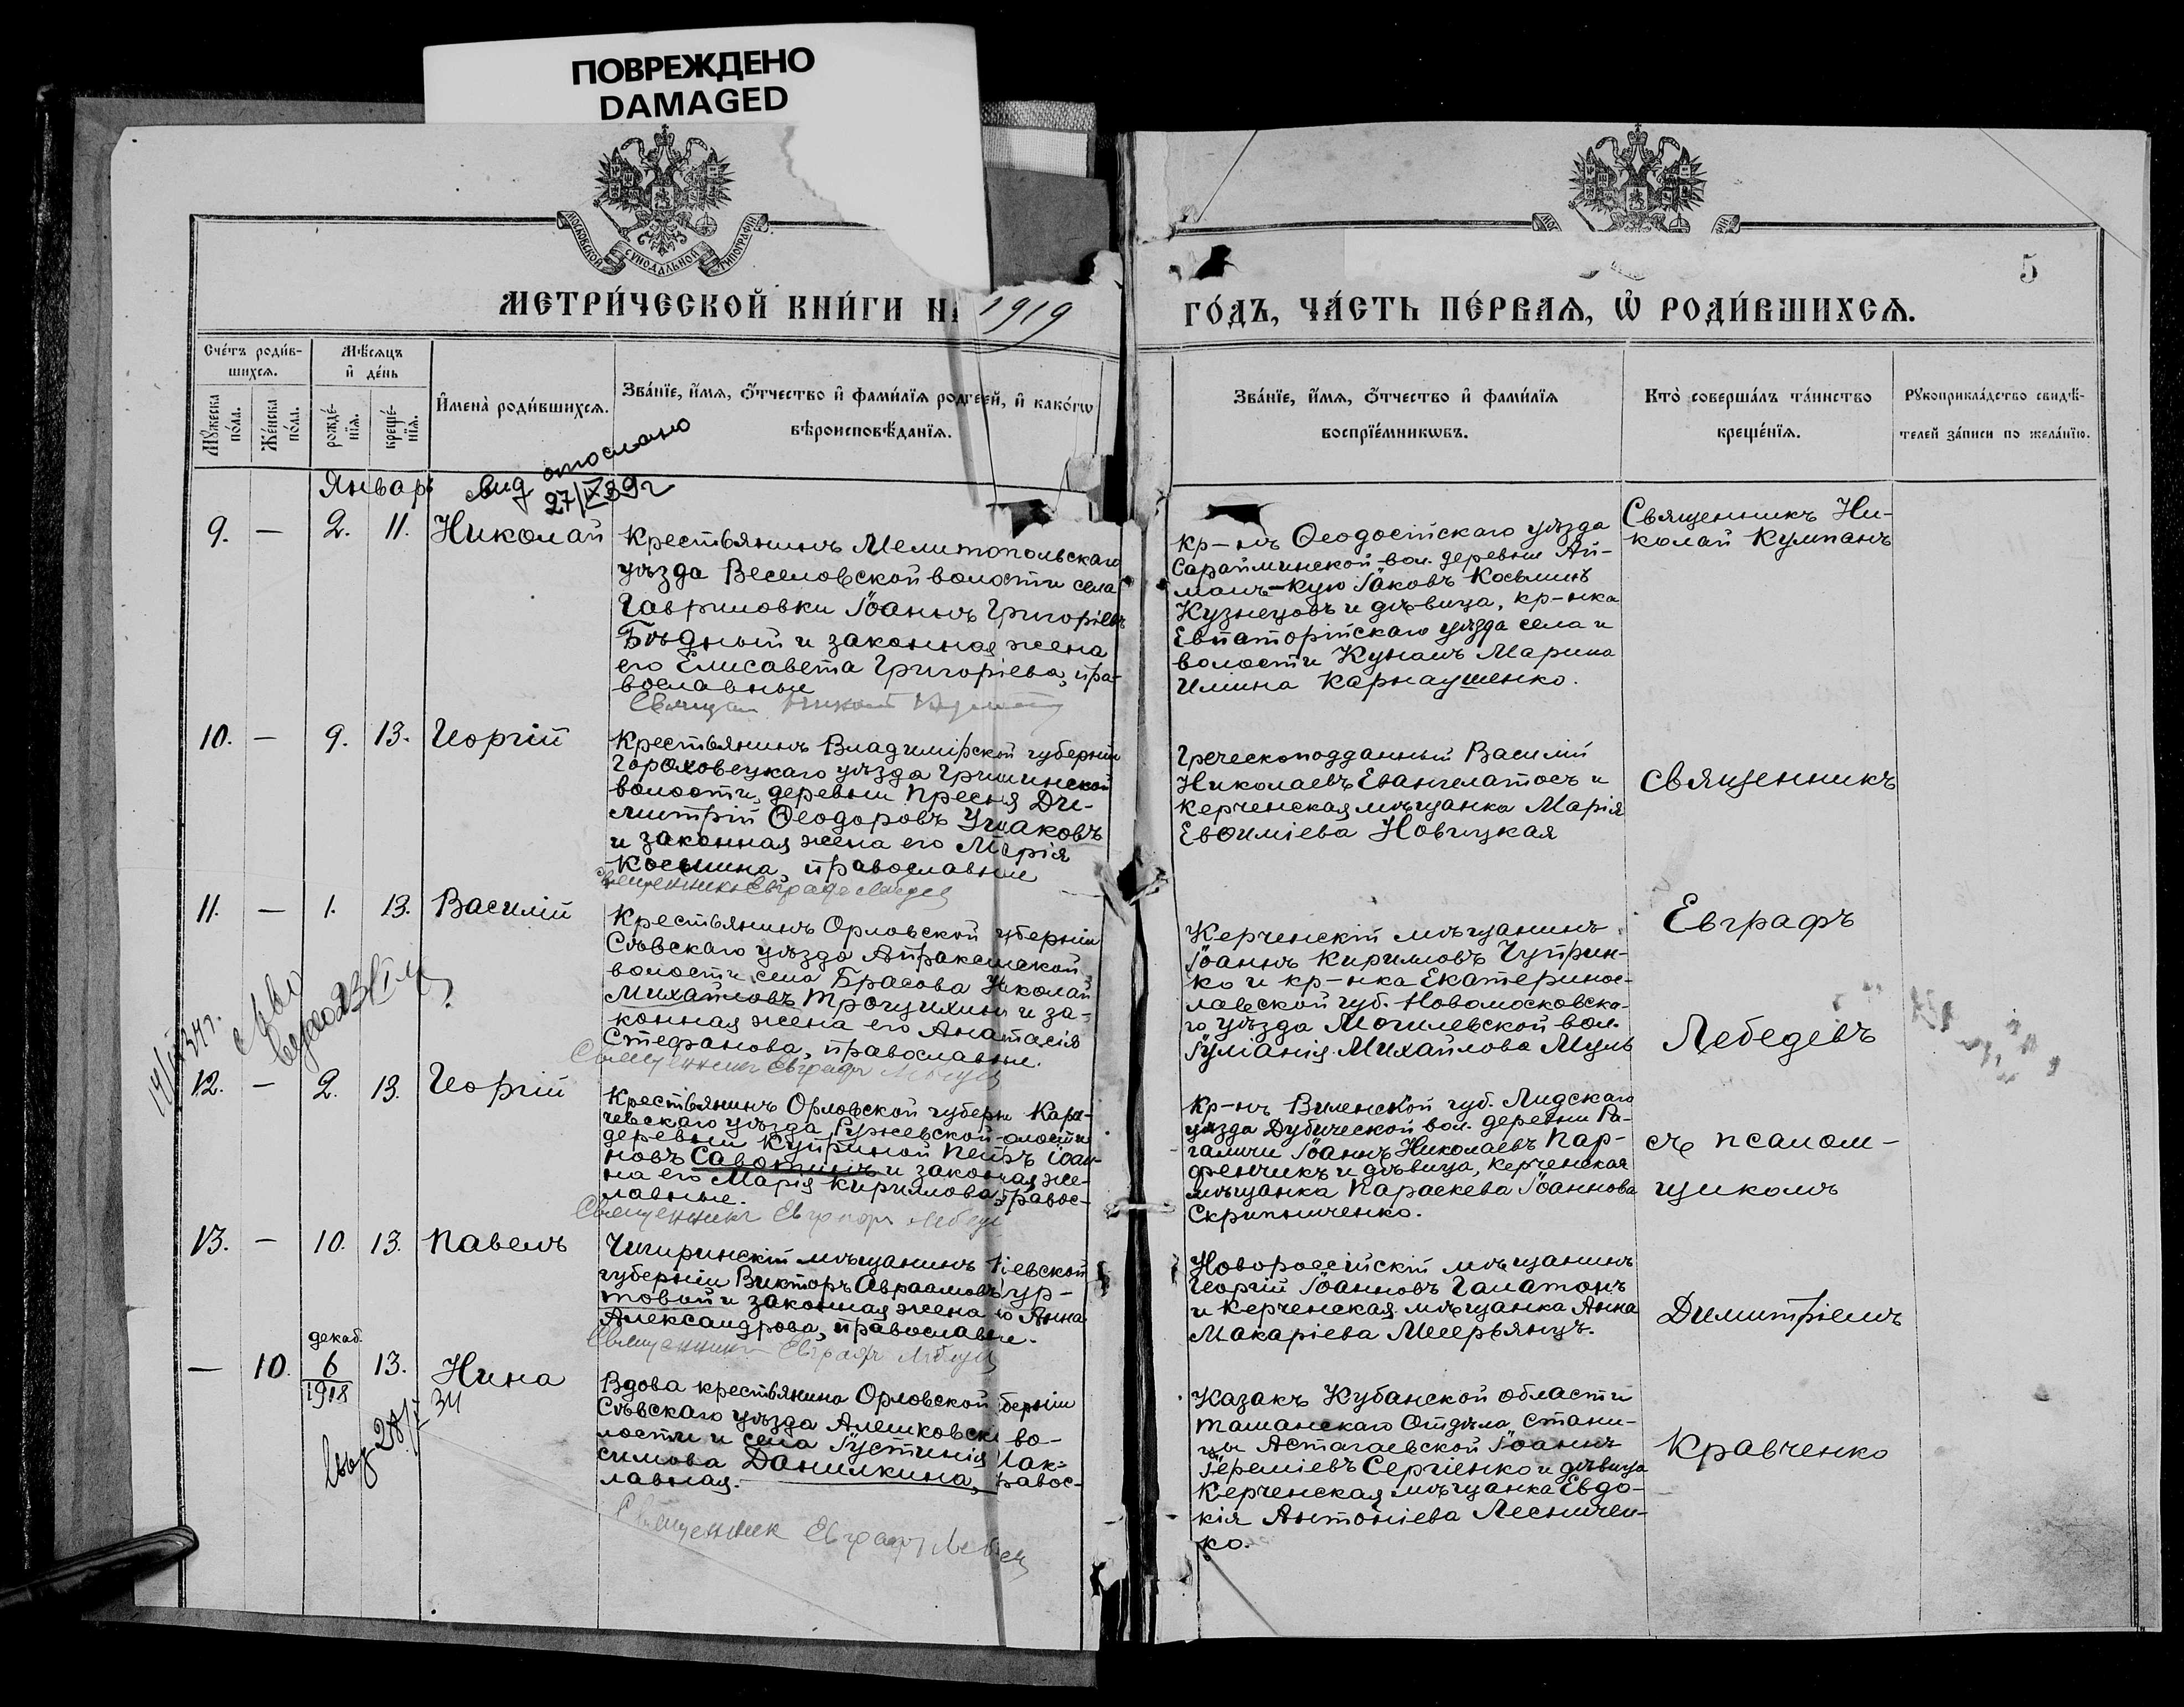 ПОВРЕЖДЕНО
DAMAGED
МОСКОВСКОЙ СУНОДАЛЬНОЙ ТИПОГРАФІИ
5
МЕТРИ́ЧЕСКОЙ КНИ́ГИ НА 1919 ГО́ДЪ, ЧА́СТЬ ПЕ́РВАѦ, Ѽ РОДИ́ВШИХСѦ.
Сче́тъ роди́в-
шихсѧ.
Мꙋ́жеска по́ла.
Же́нска по́ла.
Мѣ́сѧцъ
и҆ де́нь
рожде́-
нїѧ.
креще́-
нїѧ.
И҆мена̀ роди́вшихсѧ.
Зва́нїе, и҆́мѧ, ѻ҆́тчество и҆ фами́лїѧ родите́лей, и҆ како́гѡ
вѣроисповѣ́данїѧ.
Зва́нїе, и҆́мѧ, ѻ҆́тчество и҆ фами́лїѧ
воспрїе́мникѡвъ.
Кто̀ соверша́лъ та́инство
креще́нїѧ.
Рꙋкоприкла́дство свидѣ́-
телей за́писи по жела́нїю.
Январь
отослано
27/IX 39г
9. — 2. 11. Николай
Крестьянинъ Мелитопольскаго
уѣзда Веселовской волости села
Гавриловки Іоаннъ Григоріевъ
Бѣдный и законная жена
его Елисавета Григоріева, пра-
вославные
Кр-нъ Ѳеодосійскаго уѣзда
Сарайминской вол. деревни Ай-
манъ-Кую Іаковъ Косьминъ
Кузнецовъ и дѣвица, кр-нка
Евпаторійскаго уѣзда села и
волости Кунанъ Марина
Илина Карнаушенко.
Священникъ Ни-
колай Кулпанъ
10. — 9. 13. Георгій
Крестьянинъ Владимірской губерніи
Гороховецкаго уѣзда Гришинской
волости, деревни Пресня Ди-
митрій Ѳеодоровъ Ушаковъ
и законная жена его Марія
Косьмина, православные
Священникъ Евграфъ Лебедев
Греческоподданный Василій
Николаевъ Евангелатосъ и
Керченская мѣщанка Марія
Евѳиміева Новицкая
священникъ
11. — 1. 13. Василій
Крестьянинъ Орловской губерніи
Сѣвскаго уѣзда Апраксинской
волости села Брасова Николай
Михайловъ Трощихинъ и за-
конная жена его Анастасія
Стефанова, православные.
Священникъ Евграфъ Лебедев
Керченскій мѣщанинъ
Іоаннъ Кирилловъ Чуприн-
ко и кр-нка Екатеринос-
лавской губ. Новомосковска-
го уѣзда Могилевской вол.
Іуліанія Михайлова Муль
Евграфъ
Лебедевъ
12. — 2. 13. Георгій
Крестьянинъ Орловской губерн Кара-
чевскаго уѣзда Ружевской олости
деревни Куприной Петръ Іоан-
новъ Савоткинъ и законная же-
на его Марія Кириллова, правос-
лавные.
Священникъ Евграфъ Лебедев
Кр-нъ Виленской губ. Лидскаго
уѣзда Дубической вол. деревни Ра-
галичи Іоаннъ Николаевъ Пар-
фенчикъ и дѣвица, Керченская
мѣщанка Параскева Іоаннова
Скрипниченко.
съ псалом-
щикомъ
13. — 10. 13. Павелъ
Чигиринскій мѣщанинъ Кіевской
губерніи Викторъ Авраамовъ Гур-
товой и законная жена го Анна
Александрова, православные.
Священникъ Евграфъ Лебедев
Новороссійскій мѣщанинъ
Георгій Іоанновъ Галатонъ
и Керченская мѣщанка Анна
Макаріева Месерьянцъ.
Димитріемъ
декаб.
— 10. 6 13. Нина
1918
34
Вдова крестьянина Орловской берніи
Сѣвскаго уѣзда Алешковск во-
лости и села Іустинія Мак-
симова Данилкина, равос-
лавная.
Священник Евграфъ Лебедев
Казакъ Кубанской области
Таманскаго Отдѣла, стани-
цы Астагаевской Іоаннъ
Іереміевъ Сергіенко и дѣвица
Керченская мѣщанка Евдо-
кія Антоніева Лесничен-
ко.
Кравченко